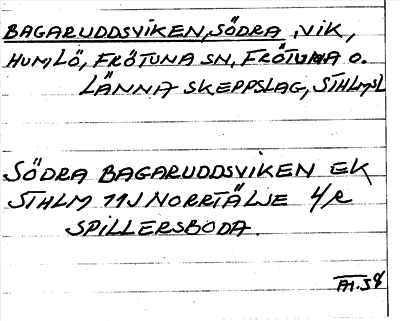 BAGARUDDSVIKEN, SÖDRA, VIK,
HUMLÖ, FRÖTUNA SN, FRÖTUNA O.
LÄNNA SKEPPSLAG, STHLMSL
SÖDRA BAGARUDDSVIKEN EK
STHLM 11J NORRTÄLJE 4/R
SPILLERSBODA.